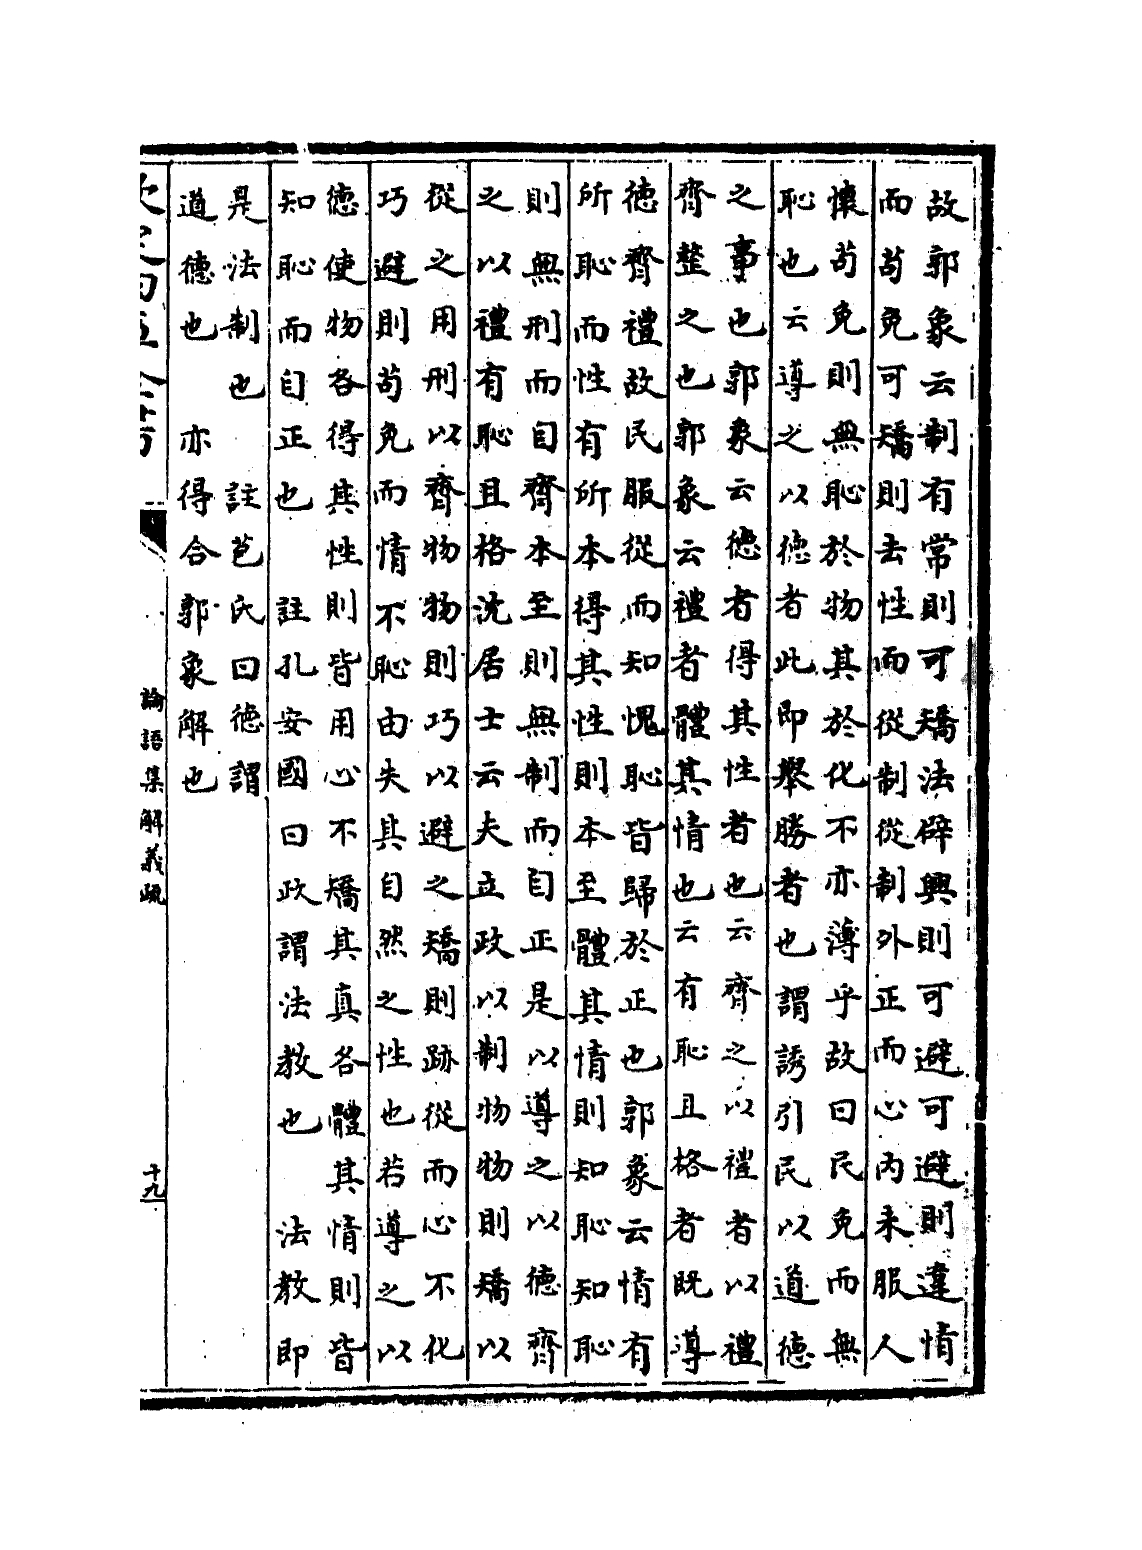 故郭象云制有常則可矯法辟興則可避可避則違情
而苟免可矯則去性而從制從制外正而心內未服人
懷苟免則無恥於物其於化不亦薄乎故曰民免而無
恥也云導之以德者此即舉勝者也謂誘引民以道德
之事也郭象云德者得其性者也云齊之以禮者以禮
齊整之也郭象云禮者體其情也云有恥且格者既導
德齊禮故民服從而知愧恥皆歸於正也郭象云情有
所恥而性有所本得其性則本至體其情則知恥知恥
則無刑而自齊本至則無制而自正是以導之以德齊
之以禮有恥且格沈居士云夫立政以制物物則矯以
從之用刑以齊物物則巧以避之矯則跡從而心不化
巧避則苟免而情不恥由失其自然之性也若導之以
德使物各得其性則皆用心不矯其真各體其情則皆
知恥而自正也 註孔安國曰政謂法教也 法教即
是法制也 註苞氏曰德謂
道德也 亦得合郭象解也
論語集解義疏
十九